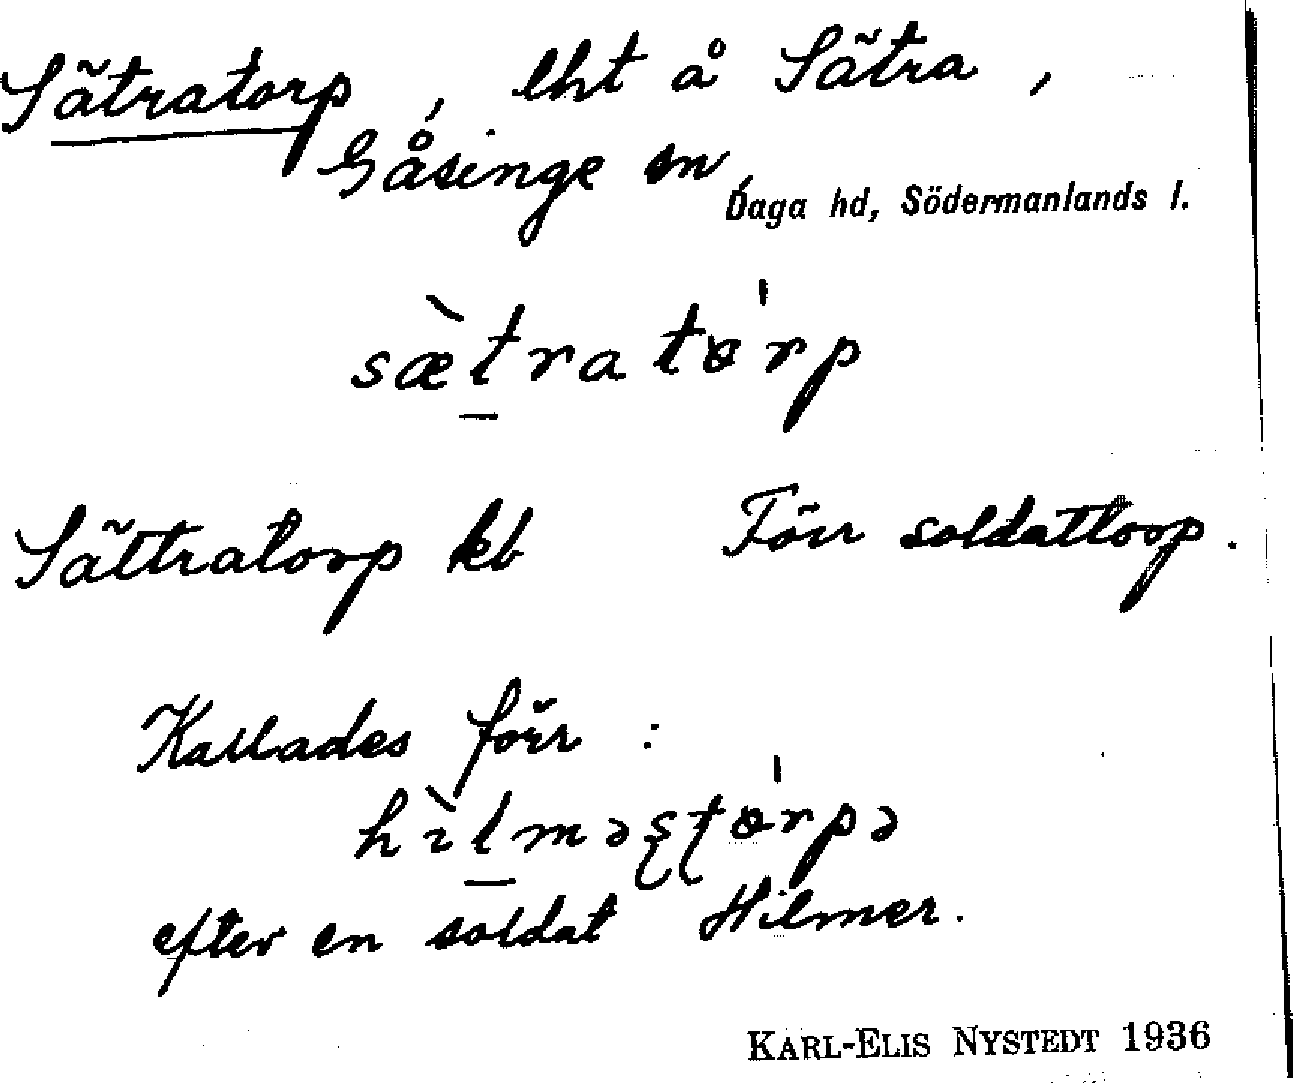 Sätratorp, lht å Sätra,
Gåsinge sn,
Daga hd, Södermanlands l.
sæ̀t̠ratɵ̍rp
Sättratorp kb Förr soldattorp.
Kallades förr :
hìl̠məʂʈɵ̍rpə
efter en soldat Hilmer.
KARL-ELIS NYSTEDT 1936